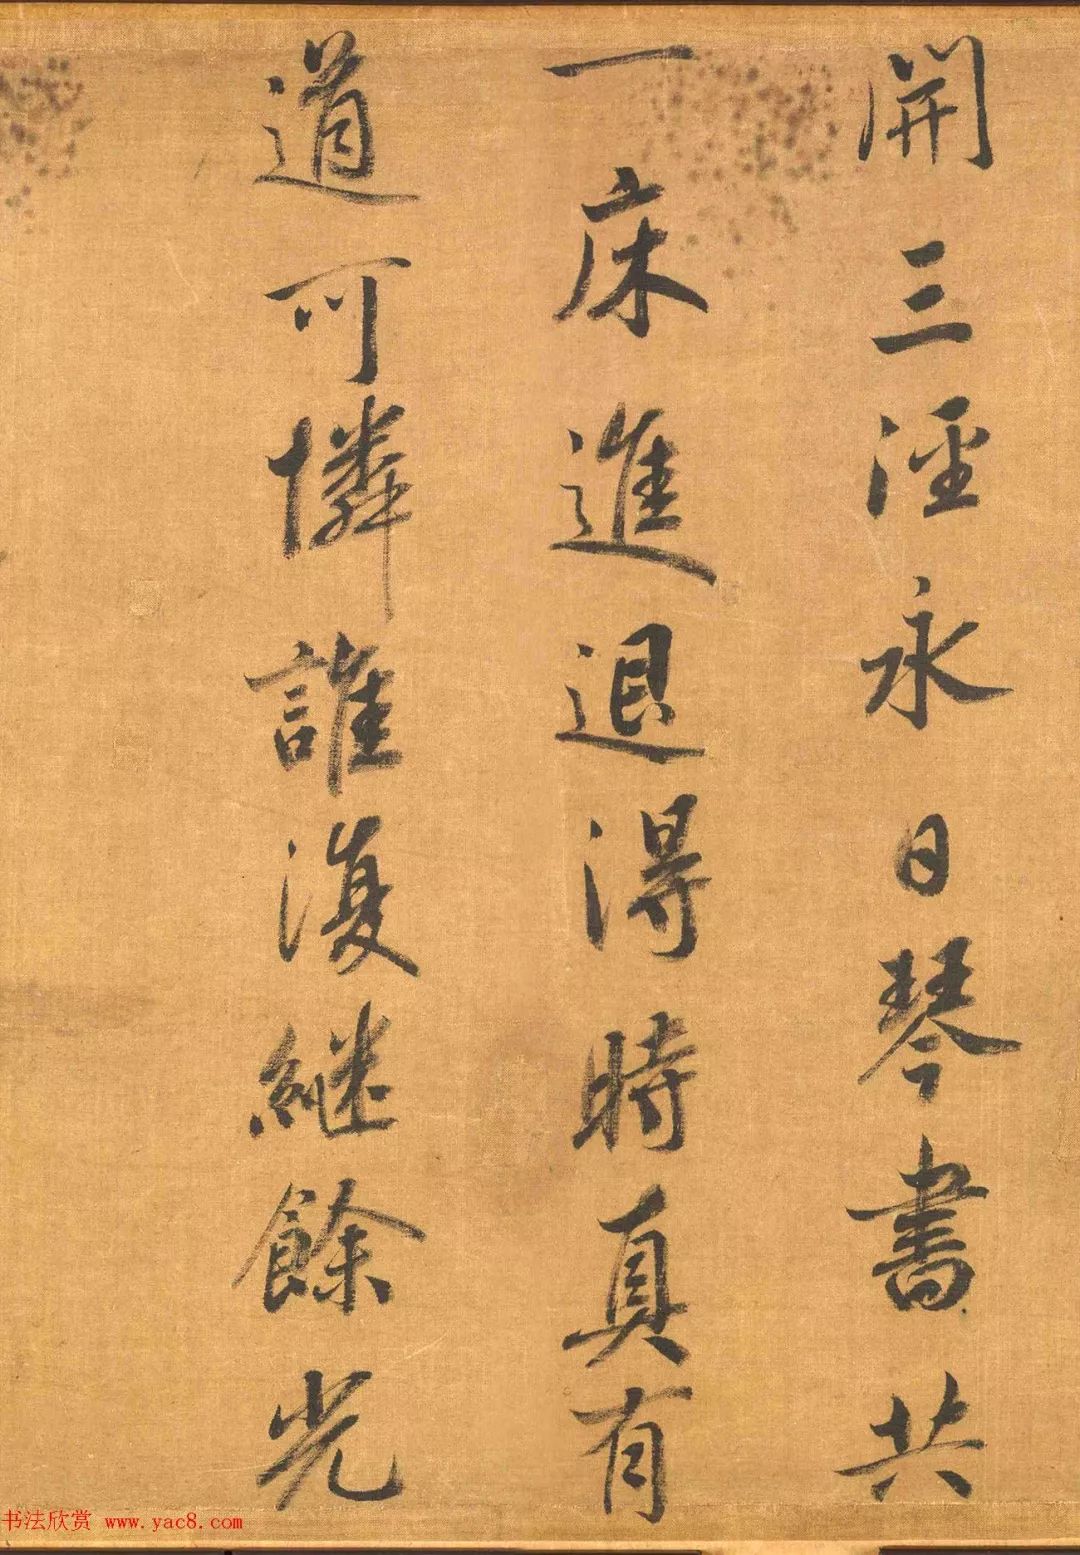 開三淫永日琴書共
一床進退得時真有
道可憐誰復継餘光
书法欣赏 www.yac8.com